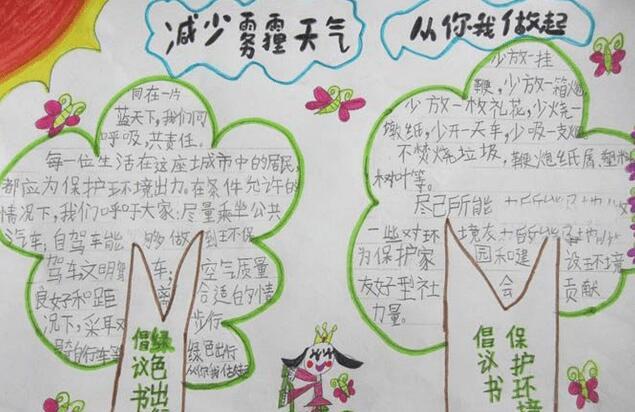 减少雾霾天气
从你我做起
同在一片
蓝天下,我们同
呼吸,共责任.
每一位生活在这座城市中的居民,
都应为保护环境出力。在条件允许的
情况下,我们呼吁大家:尽量乘坐公共
汽车,自驾车能够做到环保
驾车文明驾车;空气质量
良好和距离合适的情
况下,采取步行
骑自行车等绿色出行
从你我做起
绿色出行
倡议书
少放一挂
鞭,少放一箱炮
少放一枚礼花,少烧一
墩纸,少开一天车,少吸一支烟
不焚烧垃圾,鞭炮纸屑,塑料
树叶等。
尽己所能
一些对环境友
为保护家园和建设环境
友好型社会贡献
力量.
保护环境
倡议书